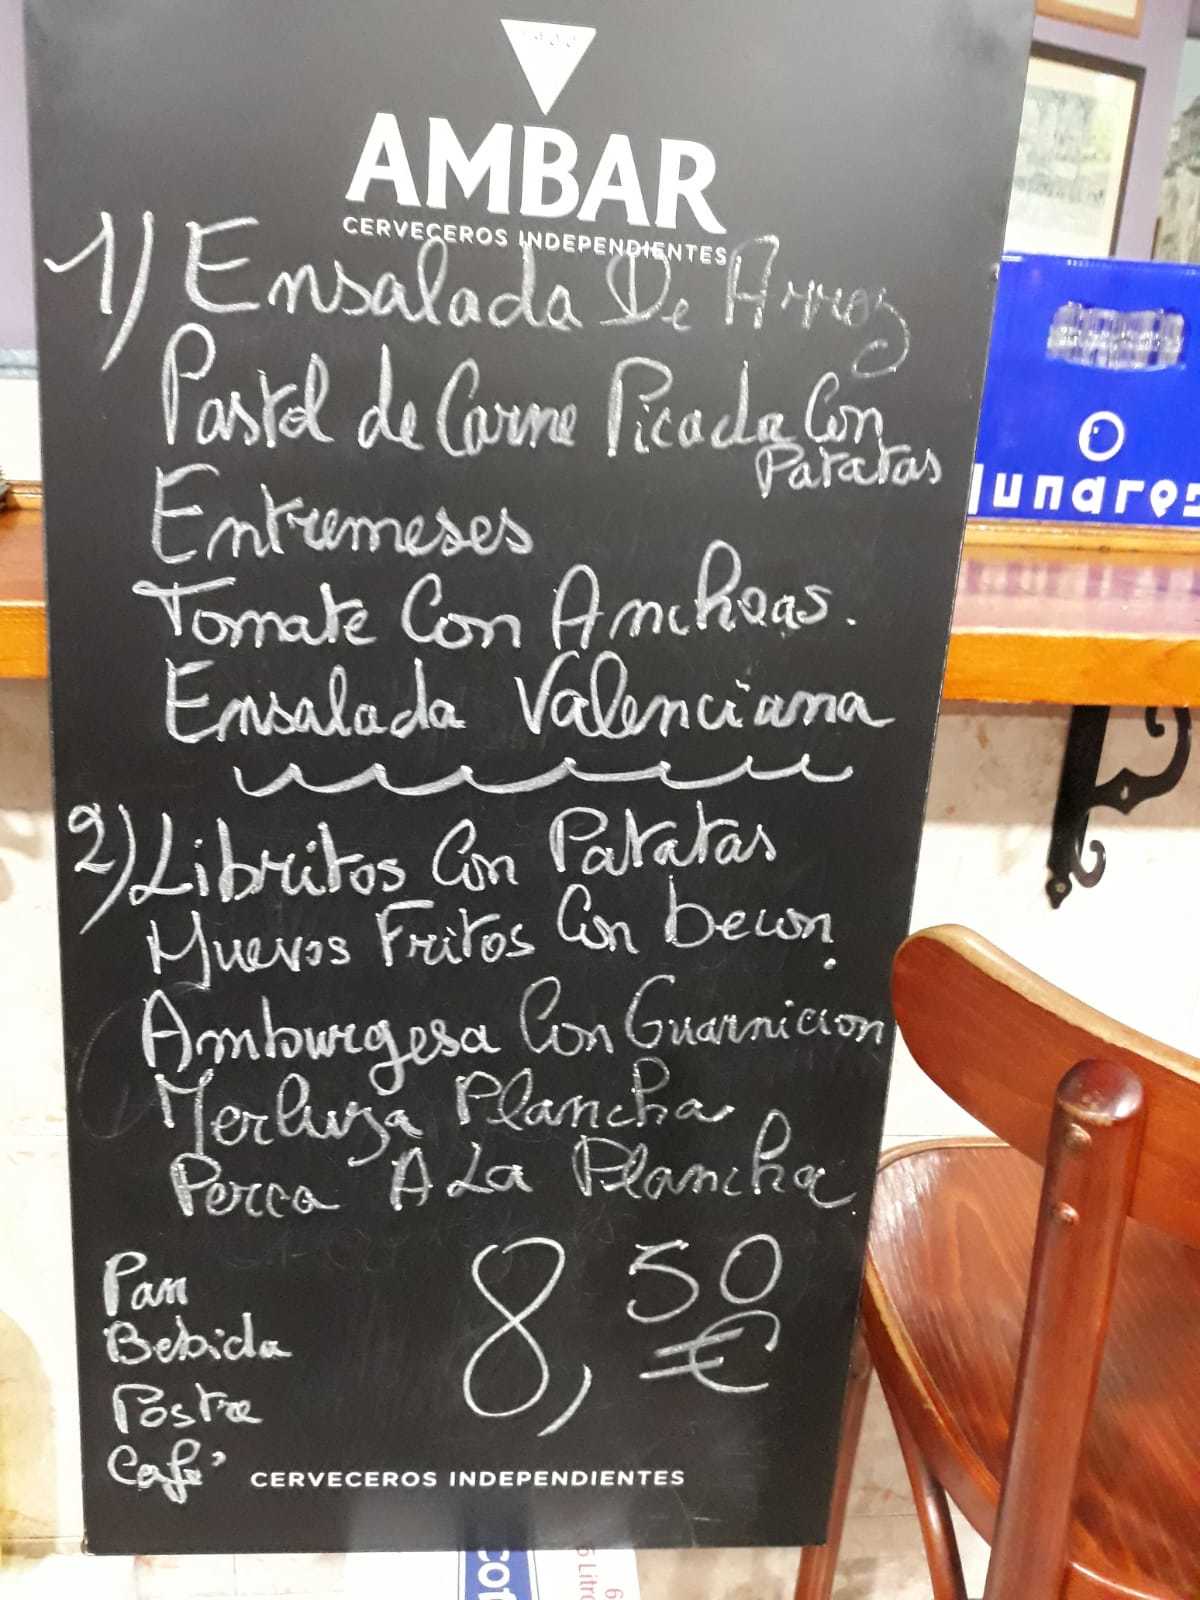 AMBAR
CERVECEROS INDEPENDIENTES
1) Ensalada De Arroz
Pastel de Carne Picada Con
Patatas
Entremeses
Tomate Con Anchoas.
Ensalada Valenciana
2) Libritos Con Patatas
Huevos Fritos Con becon.
Amburgesa Con Guarnicion
Merluza Plancha
Perca A La Plancha
Pan
Bebida
Postre
Café
8,50
€
CERVECEROS INDEPENDIENTES
lunares